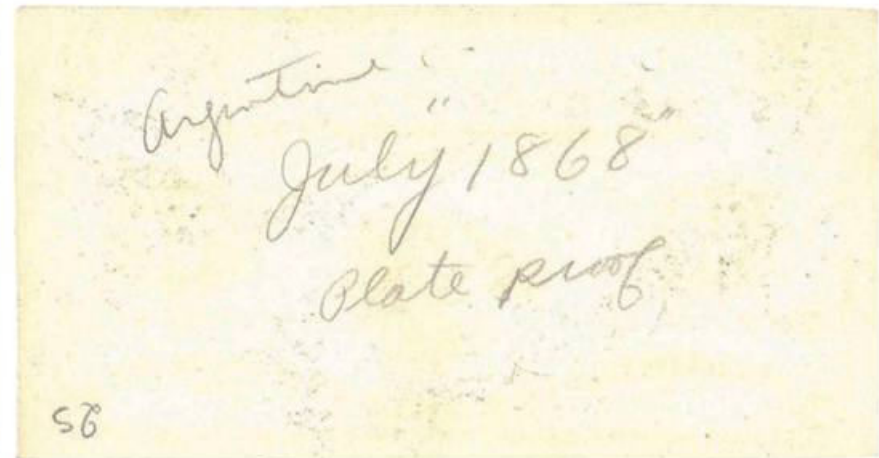 Argentine
July "1868"
Plate proof